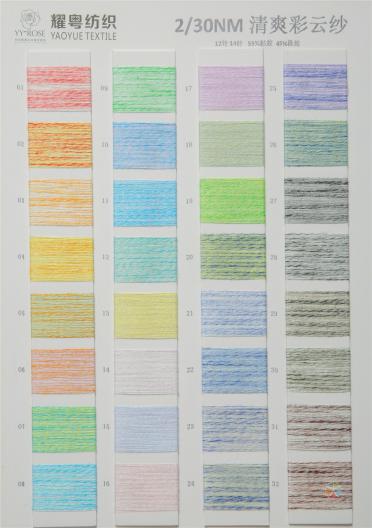 耀粤纺织
YY®ROSE
YAOYUE TEXTILE
2/30NM 清爽彩云纱
12针 14针 55%粘胶
01
09
17
25
02
10
18
26
03
11
19
27
04
12
20
28
05
13
21
29
06
14
22
30
07
15
23
31
08
16
24
32